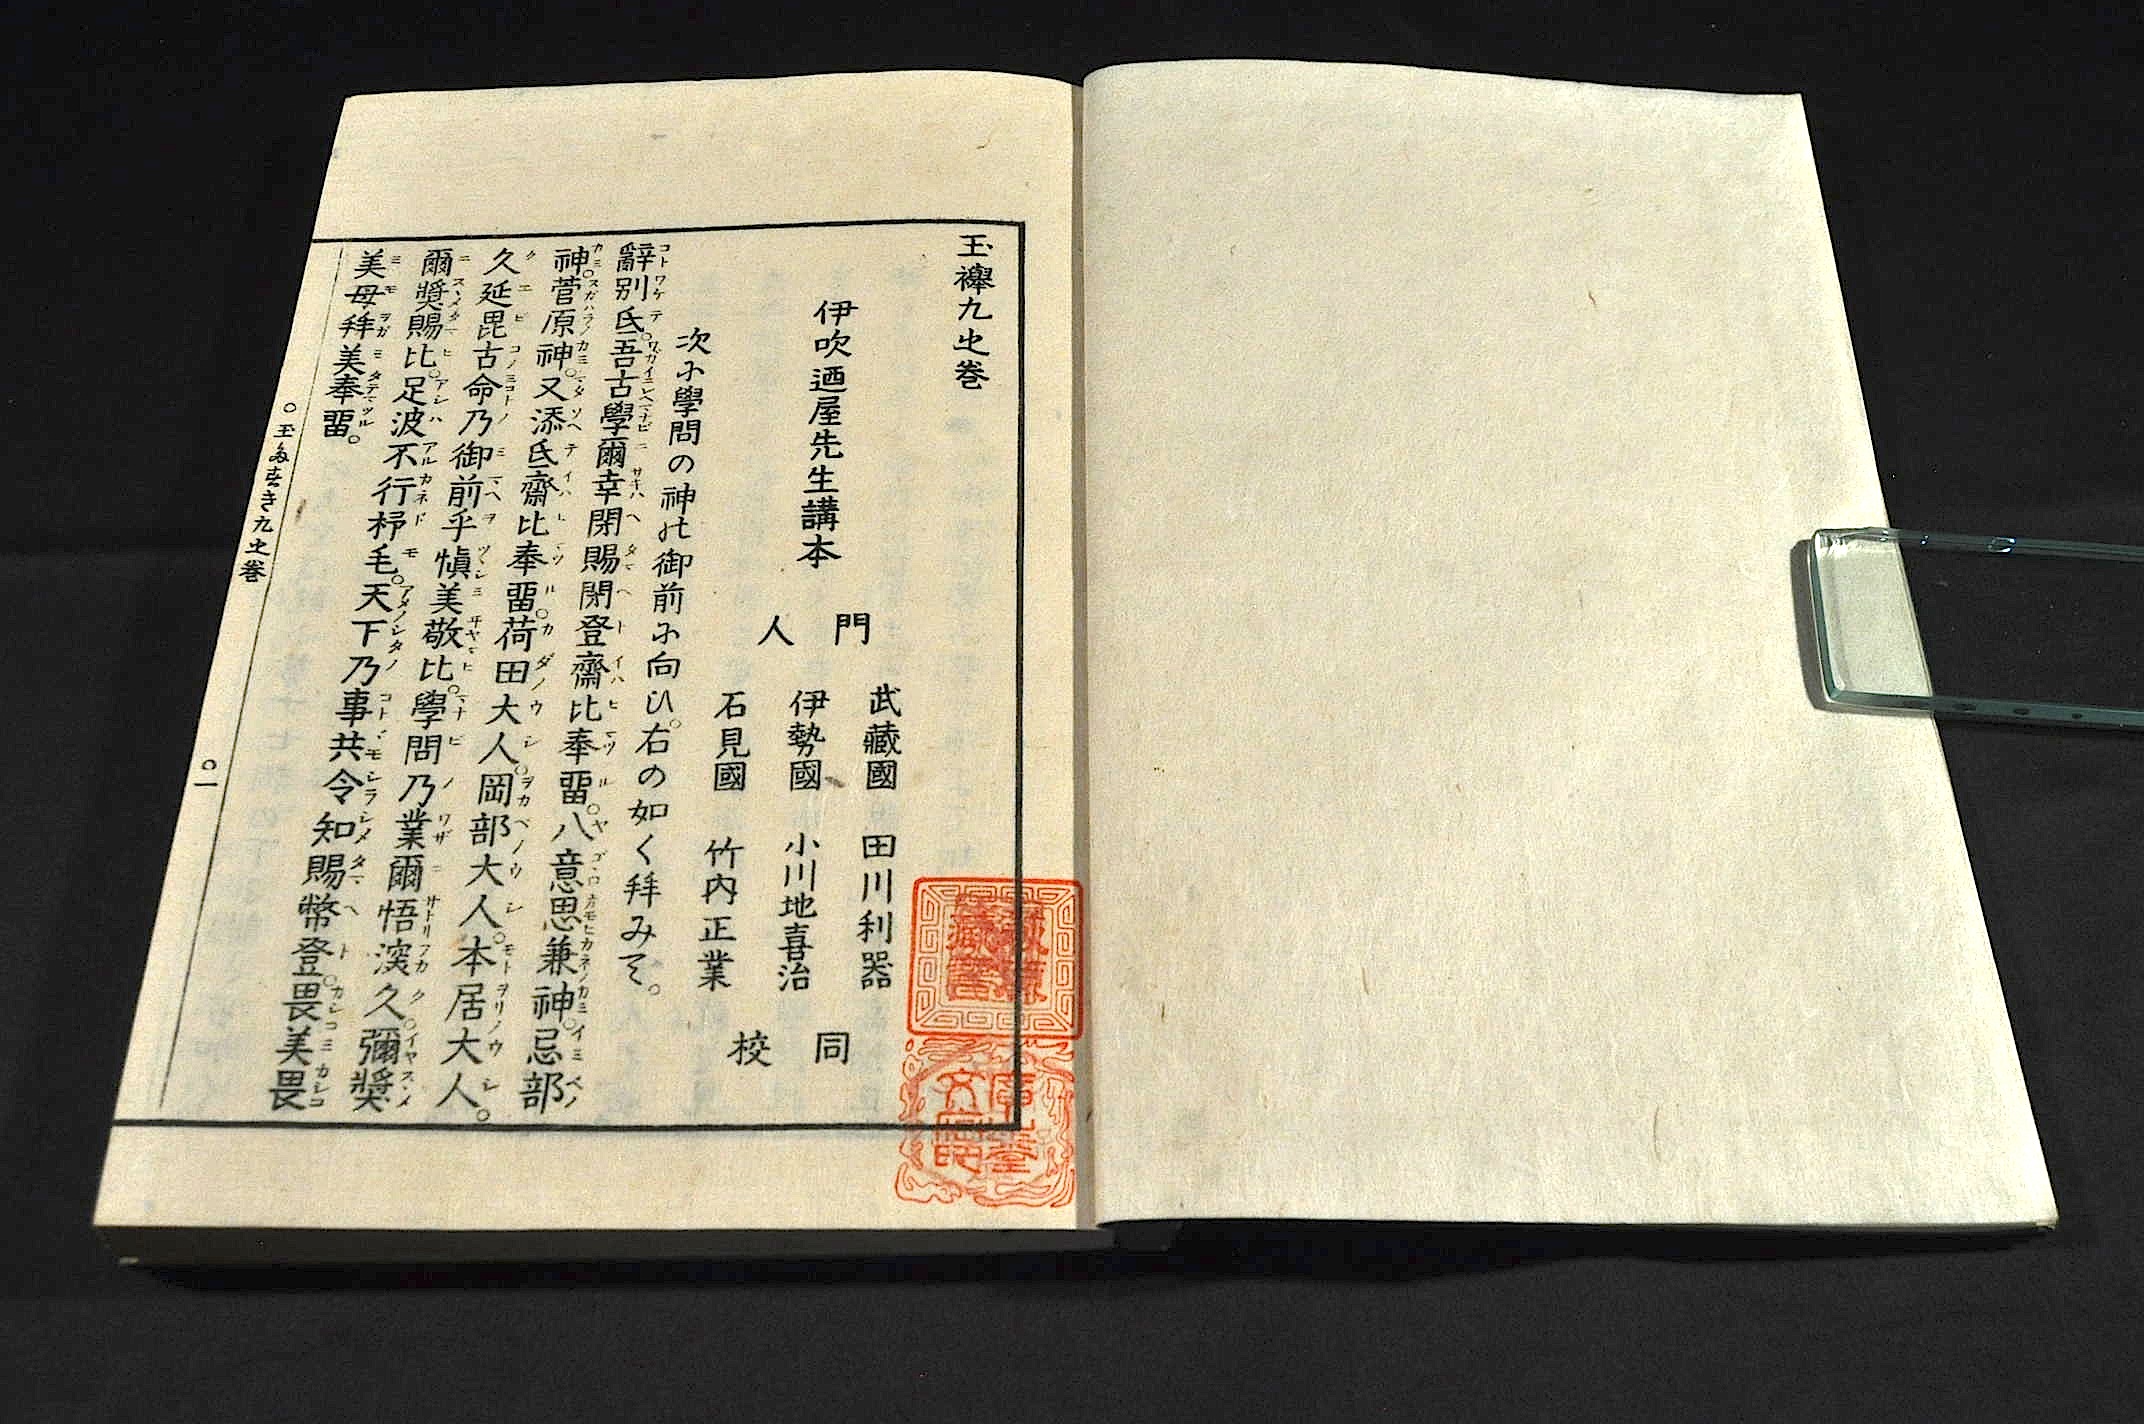 玉襷九之巻
伊吹迺屋先生講本
門人
武藏國 田川利器
伊勢國 小川地喜治
石見國 竹内正業
同校
次に學問の神の御前に向ひ。右の如く拜みて。
辭別氐。吾古學爾幸閇賜閇登齋比奉畱。八意思兼神。忌部
神。菅原神。又添氐齋比奉畱。荷田大人。岡部大人。本居大人。
久延毘古命乃御前乎愼美敬比。學問乃業爾悟深久。彌奬
爾奬賜比。足波不行杼毛。天下乃事共令知賜幣登。畏美畏
美母拜美奉畱。
○玉たすき九之巻
○一